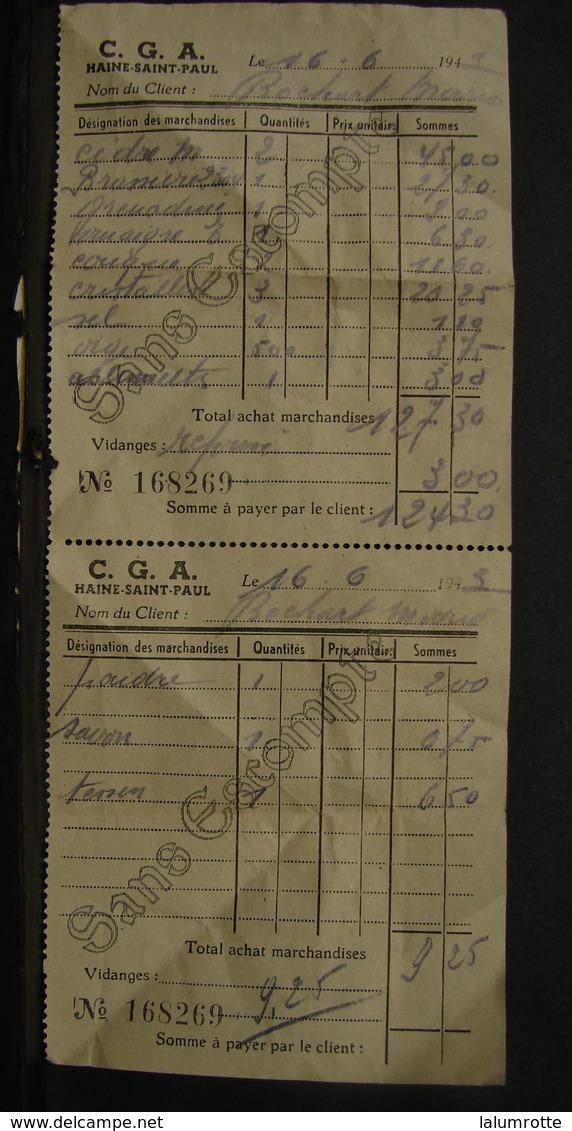 C. G. A.
HAINE-SAINT-PAUL
Le 16 - 6 1943
Nom du Client : Rochart Marie
Désignation des marchandises Quantités Prix unitaire Sommes
cidre M 2 45 00
1 27 30
Grenadine 1 9 00
Vinaigre E 1 6 30
cristallisé 3 20 25
sel 1 1 20
orge 500 3 75
1 3 00
Total achat marchandises 127 30
Vidanges : repris
No 168269 3 00
Somme à payer par le client : 124 30
Sans Escompte
C. G. A.
HAINE-SAINT-PAUL
Le 16 - 6 1943
Nom du Client : Rochart Marie
Désignation des marchandises Quantités Prix unitaire Sommes
poudre 1 2 00
savon 1 0 75
1 6 50
Sans Escompte
Total achat marchandises 9 25
Vidanges :
No 168269 9 25
Somme à payer par le client :
www.delcampe.net
lalumrotte